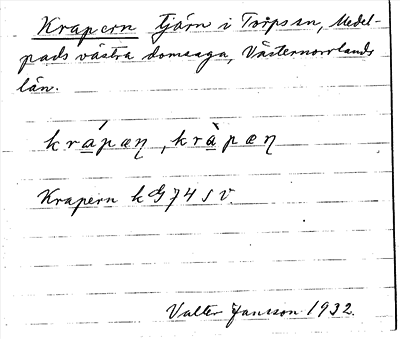 Krapern tjärn i Torps sn, Medel-
pads västra domsaga, Västernorrlands
län.
krápæn, kràpæn
Krapern k G 74 SV.
Valter Jansson 1932.